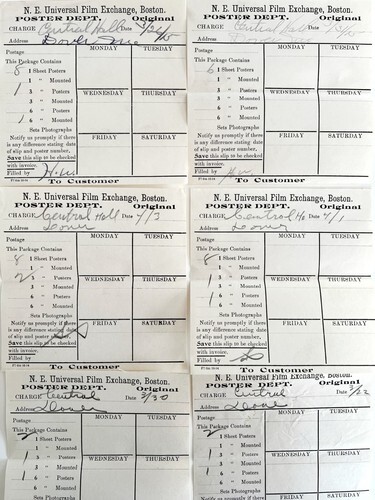 N. E. Universal Film Exchange, Boston.
POSTER DEPT. Original
CHARGE Central Hall Date 3/24/15
Address Dover, Me
Postage MONDAY TUESDAY
This Package Contains
8 1 Sheet Posters
1 " Mounted
1 3 " Posters WEDNESDAY THURSDAY
3 " Mounted
1 6 " Posters
6 " Mounted
Sets Photographs
Notify us promptly if there FRIDAY SATURDAY
is any difference stating date
of slip and poster number.
Save this slip to be checked
with invoice.
Filled by
To Customer
N. E. Universal Film Exchange, Boston.
POSTER DEPT. Original
CHARGE Central Hall Date
Address
Postage MONDAY TUESDAY
This Package Contains
6 1 Sheet Posters
1 " Mounted
1 3 " Posters WEDNESDAY THURSDAY
3 " Mounted
1 6 " Posters
6 " Mounted
Sets Photographs
Notify us promptly if there FRIDAY SATURDAY
is any difference stating date
of slip and poster number.
Save this slip to be checked
with invoice.
Filled by
To Customer
N. E. Universal Film Exchange, Boston.
POSTER DEPT. Original
CHARGE Central Hall Date 4/3
Address Dover
Postage MONDAY TUESDAY
This Package Contains
8 1 Sheet Posters
1 " Mounted
2 3 " Posters WEDNESDAY THURSDAY
3 " Mounted
6 " Posters
6 " Mounted
Sets Photographs
Notify us promptly if there FRIDAY SATURDAY
is any difference stating date
of slip and poster number.
Save this slip to be checked
with invoice.
Filled by
To Customer
N. E. Universal Film Exchange, Boston.
POSTER DEPT. Original
CHARGE Central Ha Date 4/1
Address Dover
Postage MONDAY TUESDAY
This Package Contains
8 1 Sheet Posters
1 " Mounted
1 3 " Posters WEDNESDAY THURSDAY
3 " Mounted
1 6 " Posters
6 " Mounted
Sets Photographs
Notify us promptly if there FRIDAY SATURDAY
is any difference stating date
of slip and poster number.
Save this slip to be checked
with invoice.
Filled by
To Customer
N. E. Universal Film Exchange, Boston.
POSTER DEPT. Original
CHARGE Central Date 3/30
Address Dover
Postage MONDAY TUESDAY
This Package Contains
2 1 Sheet Posters
1 " Mounted
1 3 " Posters WEDNESDAY THURSDAY
3 " Mounted
1 6 " Posters
6 " Mounted
Sets Photographs
N. E. Universal Film Exchange, Boston.
POSTER DEPT. Original
CHARGE Central Date 3/22
Address Dover
Postage MONDAY TUESDAY
This Package Contains
2 1 Sheet Posters
1 " Mounted
1 3 " Posters WEDNESDAY THURSDAY
3 " Mounted
1 6 " Posters
6 " Mounted
Sets Photographs